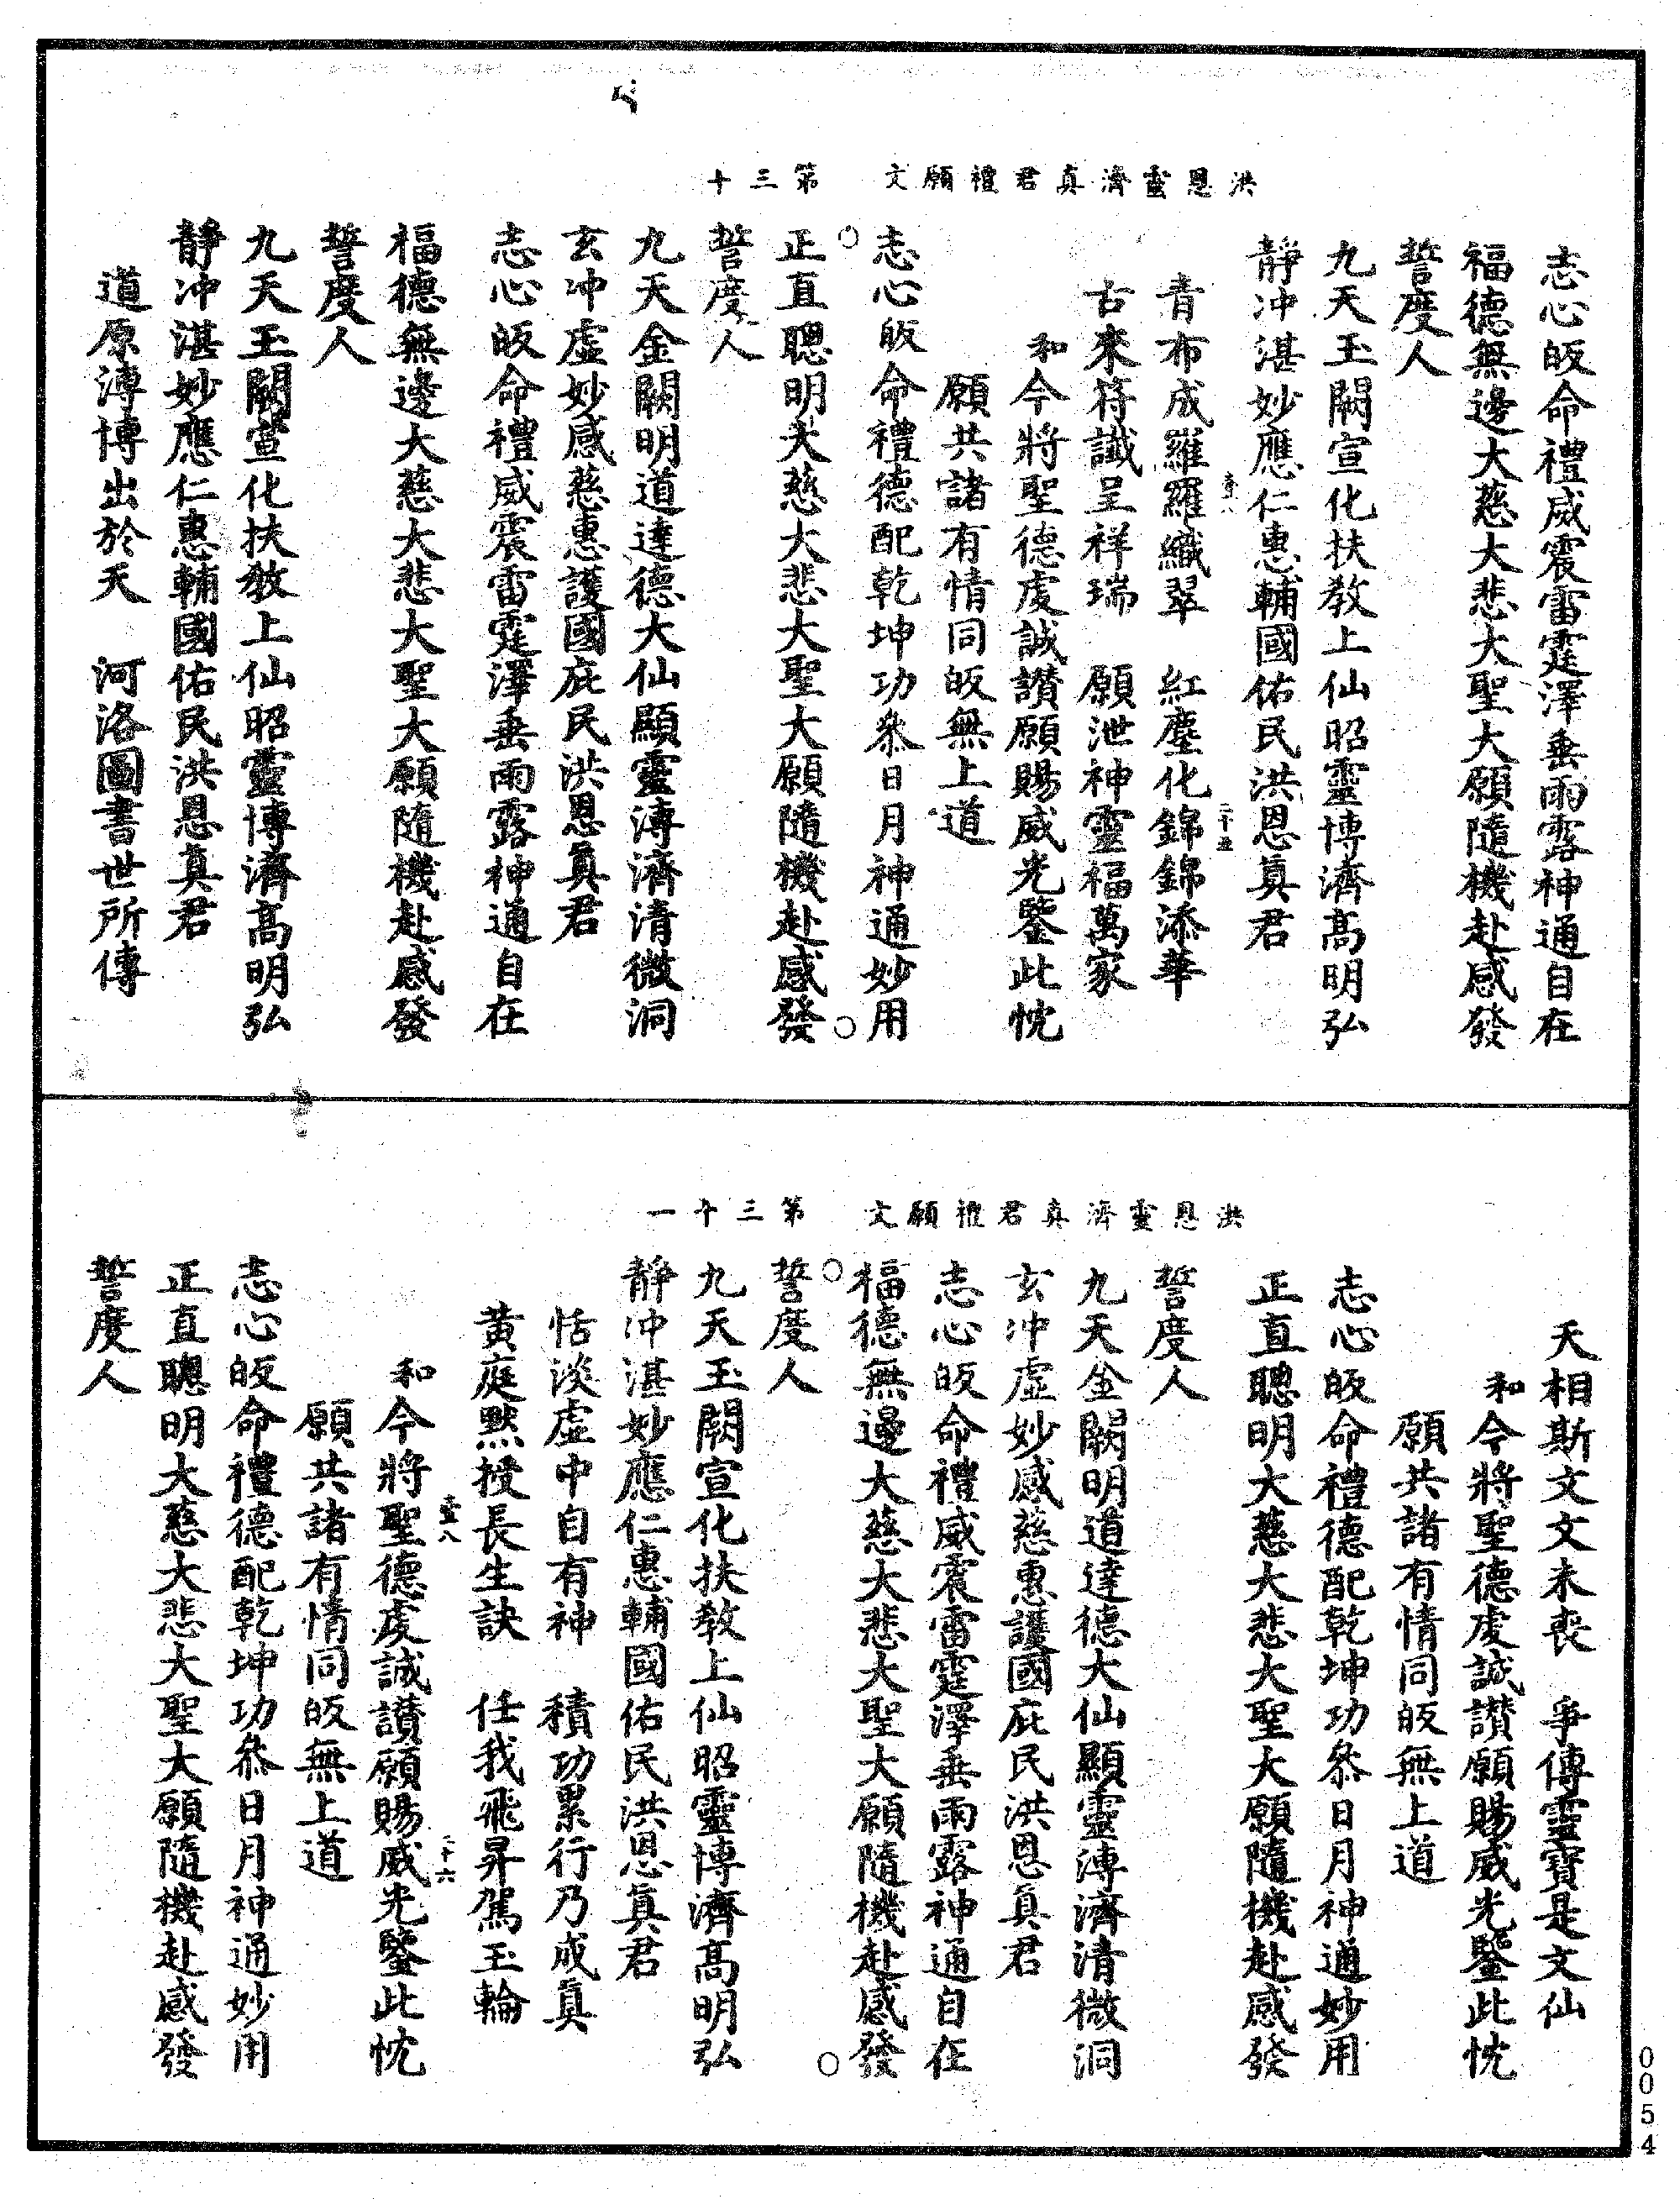 洪恩靈濟真君禮願文　第三十
志心皈命禮威震雷霆澤垂雨露神通自在
福德無邊大慈大悲大聖大願隨機赴感發
誓度人
九天玉闕宣化扶教上仙昭靈博濟高明弘
靜冲湛妙應仁惠輔國佑民洪恩真君
青布成羅羅織翠　紅塵化錦錦添華
二十五
古來符讖呈祥瑞　願泄神靈福萬家
和今將聖德虔誠讚願賜威光鑒此忱
願共諸有情同皈無上道
志心皈命禮德配乾坤功叅日月神通妙用
正直聰明大慈大悲大聖大願隨機赴感發
誓度人
九天金闕明道達德大仙顯靈溥濟清微洞
玄冲虛妙感慈惠護國庇民洪恩真君
志心皈命禮威震雷霆澤垂雨露神通自在
福德無邊大慈大悲大聖大願隨機赴感發
誓度人
九天玉闕宣化扶教上仙昭靈博濟高明弘
靜冲湛妙應仁惠輔國佑民洪恩真君
道原溥博出於天　河洛圖書世所傳
洪恩靈濟真君禮願文　第三十一
天相斯文文未喪　爭傳靈寶是文仙
和今將聖德虔誠讚願賜威光鑒此忱
願共諸有情同皈無上道
志心皈命禮德配乾坤功叅日月神通妙用
正直聰明大慈大悲大聖大願隨機赴感發
誓度人
九天金闕明道達德大仙顯靈溥濟清微洞
玄冲虛妙感慈惠護國庇民洪恩真君
志心皈命禮威震雷霆澤垂雨露神通自在
福德無邊大慈大悲大聖大願隨機赴感發
誓度人
九天玉闕宣化扶教上仙昭靈博濟高明弘
靜冲湛妙應仁惠輔國佑民洪恩真君
恬淡虛中自有神　積功累行乃成真
黃庭默授長生訣　任我飛昇駕玉輪
二十六
和今將聖德虔誠讚願賜威光鑒此忱
願共諸有情同皈無上道
志心皈命禮德配乾坤功叅日月神通妙用
正直聰明大慈大悲大聖大願隨機赴感發
誓度人
0054